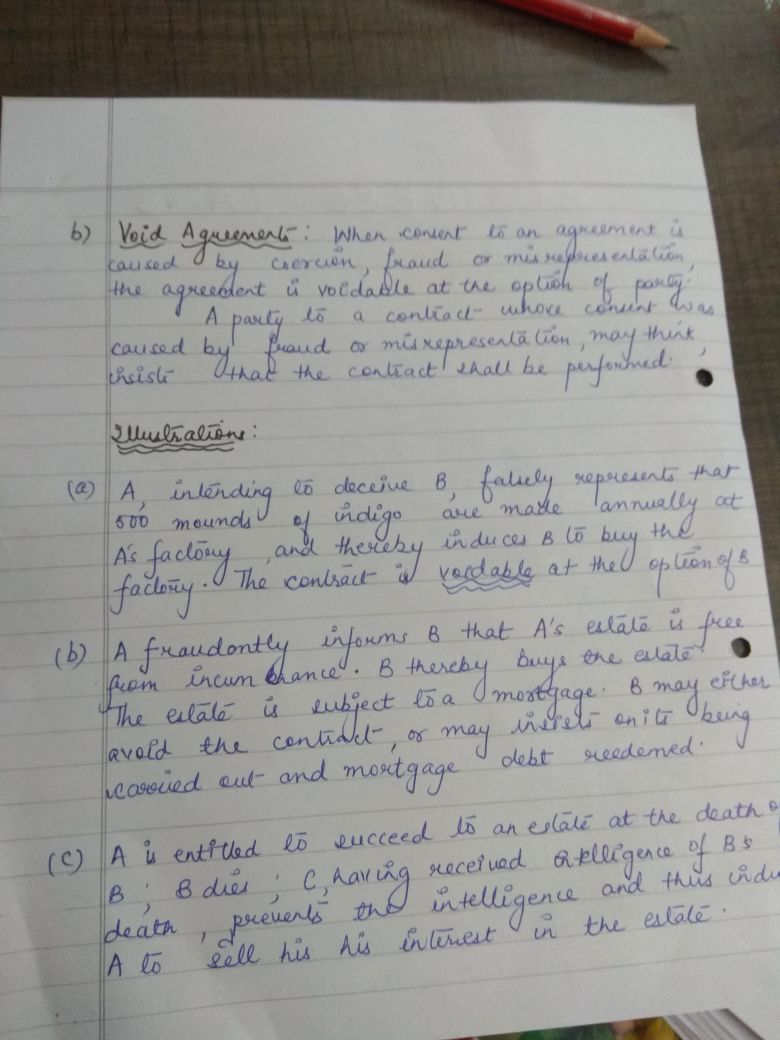 b) Void Agreements: When consent to an agreement is
caused by coercion, fraud or misrepresentation,
the agreement is voidable at the option of party.
A party to a contract whose consent was
caused by fraud or misrepresentation, may think,
insists that the contract shall be performed.
Illustrations:
(a) A, intending to deceive B, falsely represents that
500 mounds of indigo are made annually at
A's factory, and thereby induces B to buy the
factory. The contract is voidable at the option of B
(b) A fraudontly informs B that A's estate is free
from incumbrance. B thereby buys the estate.
The estate is subject to a mortgage. B may either
avoid the contract, or may insists on its being
carried out and mortgage debt reedemed.
(c) A is entitled to succeed to an estate at the death o
B; B dies; C, having received of B's
death, prevents the intelligence and thus indu
A to sell his his interest in the estate.